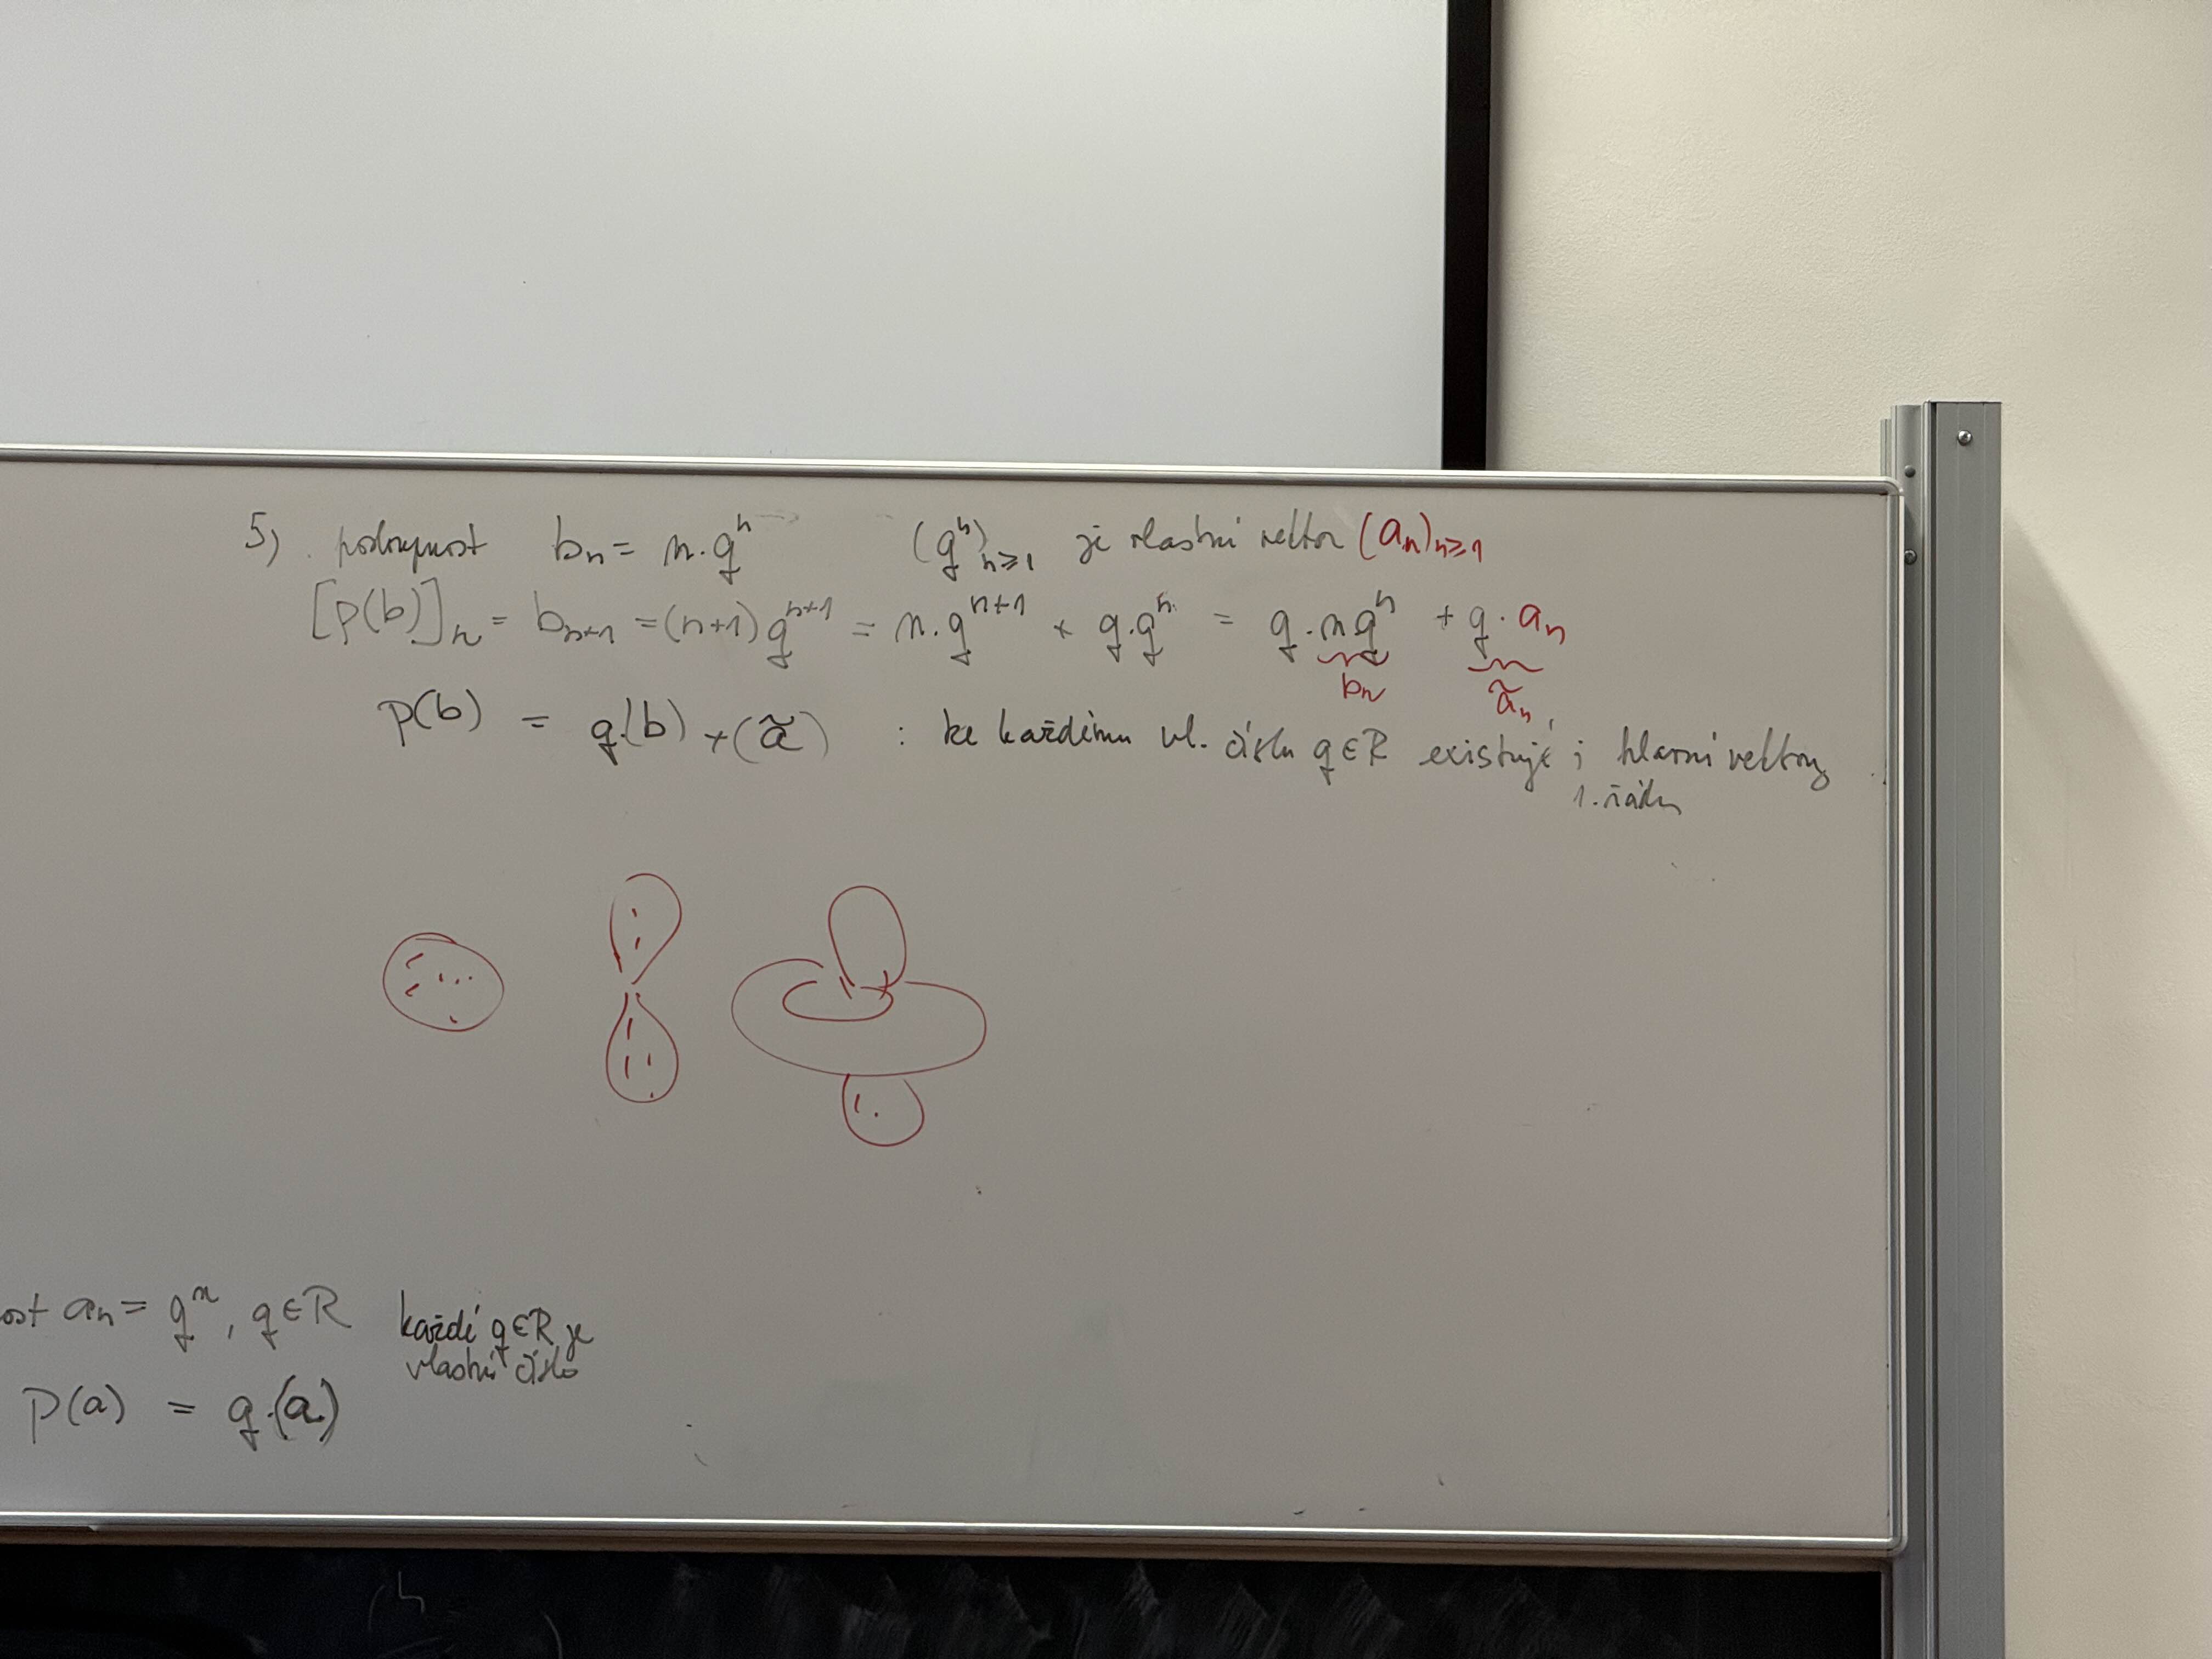 5) posloupnost bₙ = n·qⁿ (qⁿ)ₙ≥₁ je vlastní vektor (aₙ)ₙ≥₁
[p(b)]ₙ = bₙ₊₁ = (n+1)qⁿ⁺¹ = n·qⁿ⁺¹ + q·qⁿ = q·nqⁿ + q·aₙ
bₙ ãₙ
p(b) = q·(b) + (ã) : ke každému vl. číslu q∈R existuje i hlavní vektor
1. řádu
ost aₙ = qⁿ, q∈R každé q∈R je
vlastní číslo
p(a) = q·(a)